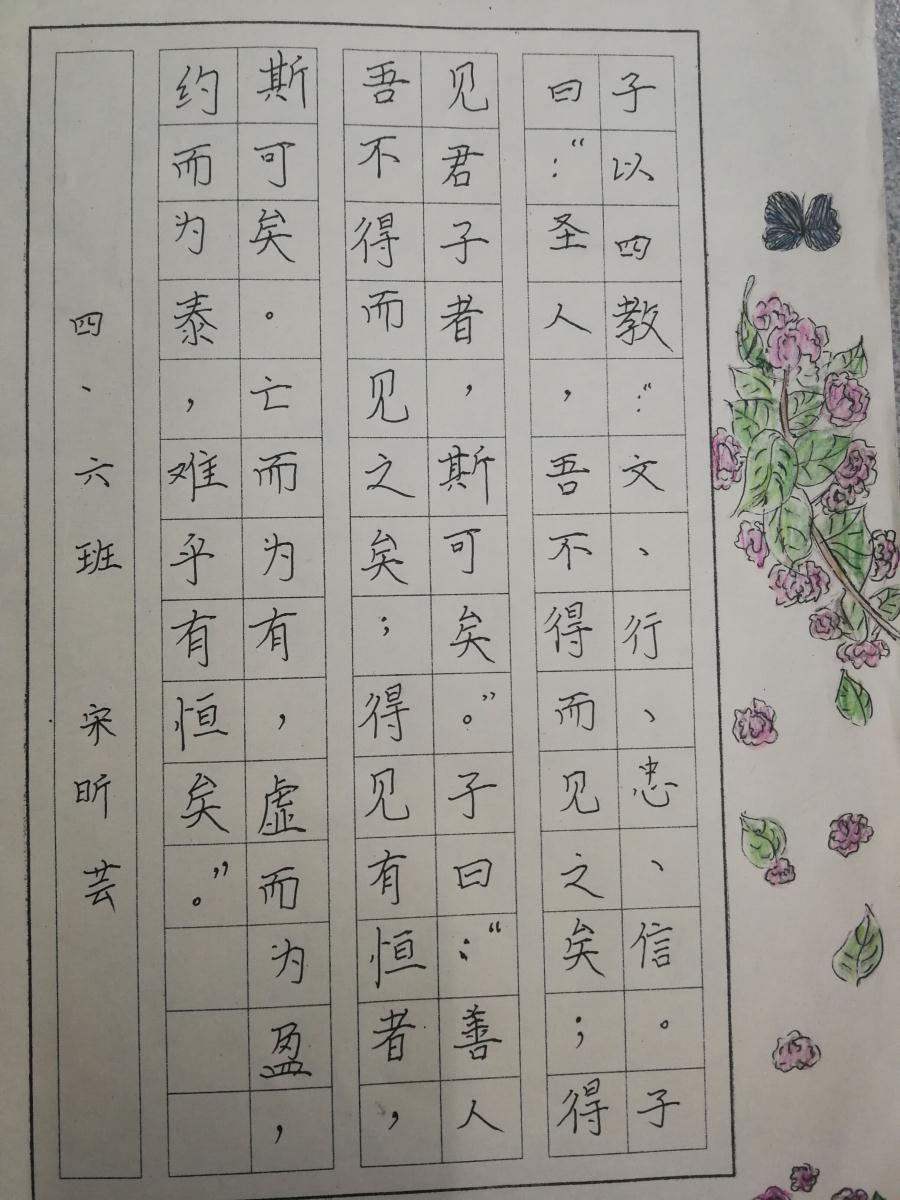 子以四教：“文、行、忠、信。子
曰：“圣人，吾不得而见之矣；得
见君子者，斯可矣。”子曰：“善人
吾不得而见之矣；得见有恒者，
斯可矣。亡而为有，虚而为盈，
约而为泰，难乎有恒矣。”
四、六班 宋昕芸